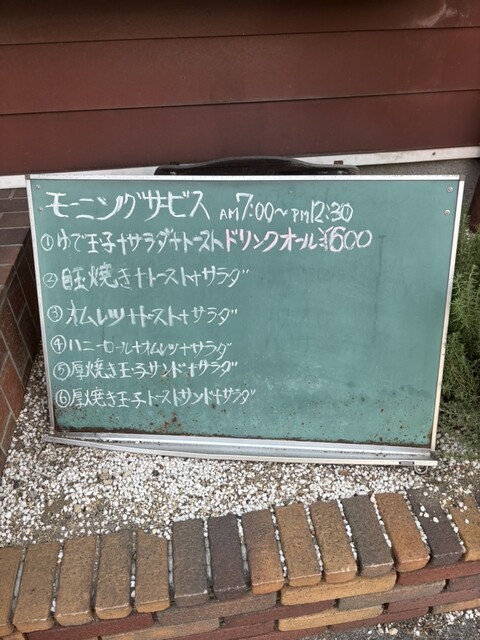 モーニングサービス AM7:00~PM12:30
①ゆで玉子+サラダ+トースト ドリンクオール¥600
②目玉焼き+トースト+サラダ
③オムレツ+トースト+サラダ
④ハニーロール+オムレツ+サラダ
⑤厚焼き玉子サンド+サラダ
⑥厚焼き玉子トーストサンド+サラダ